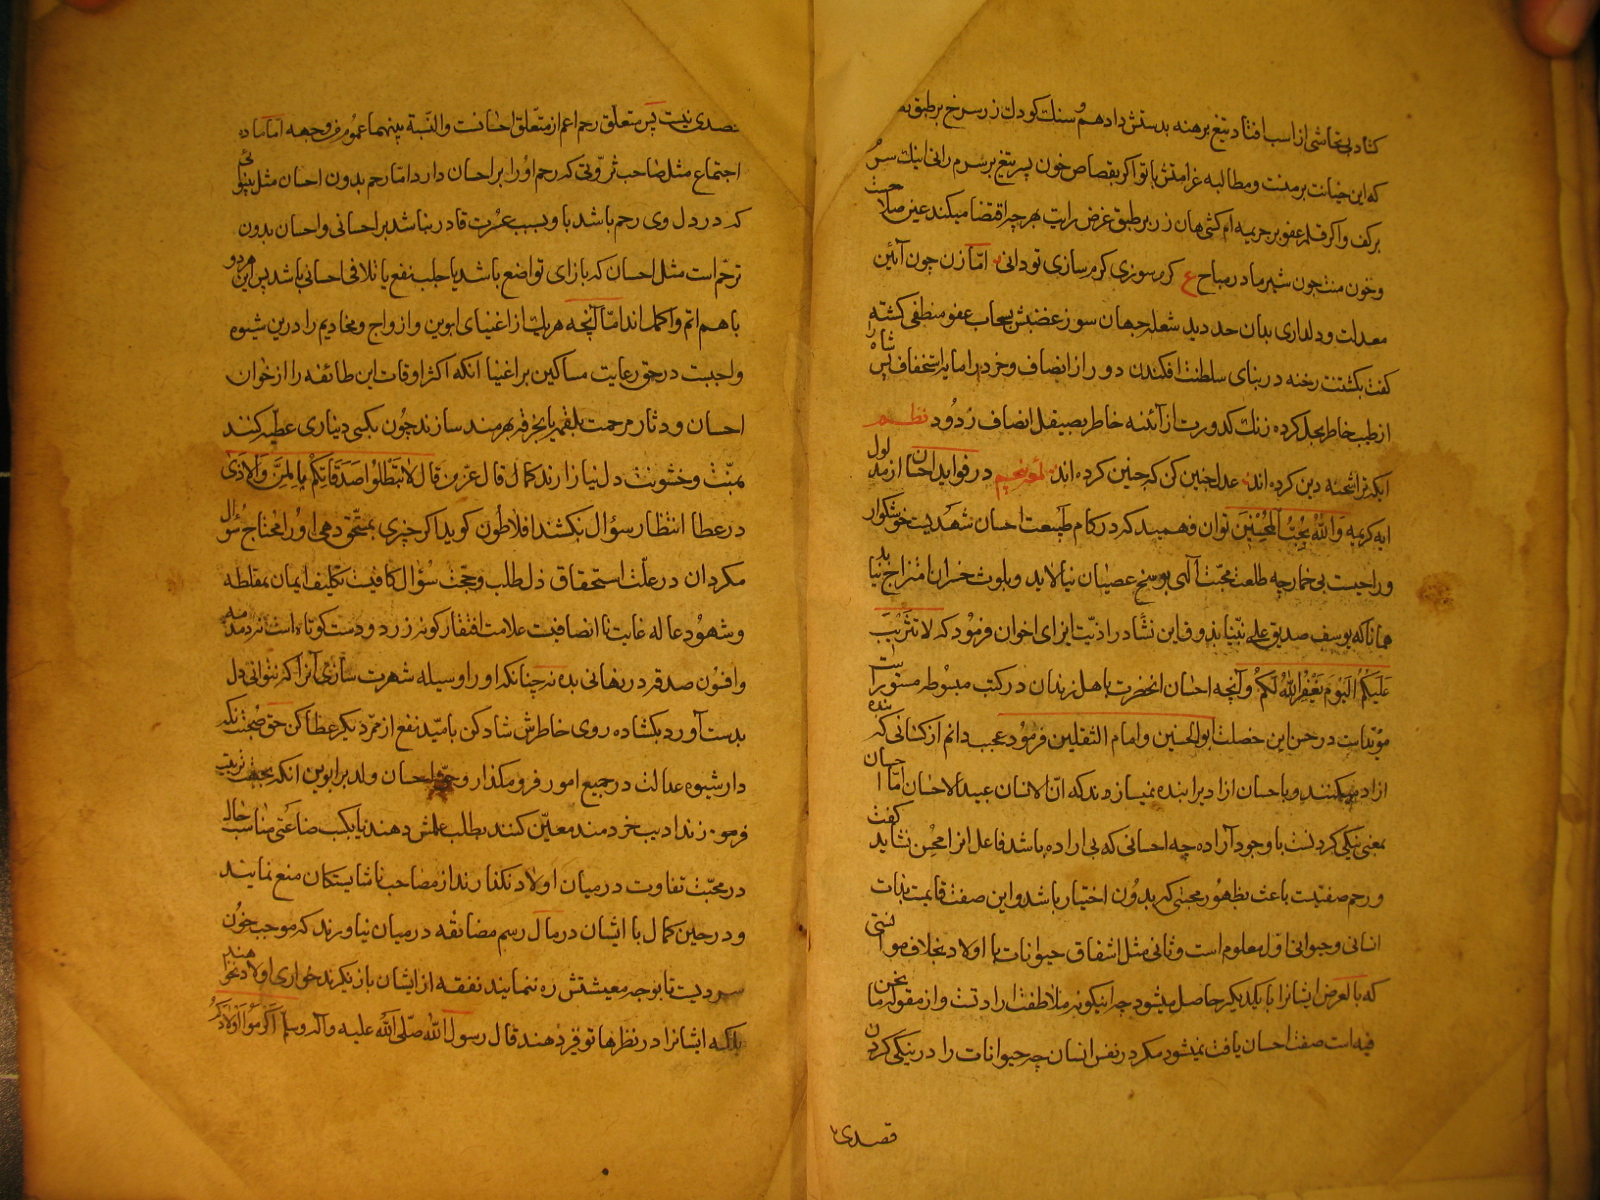 کشاد بی تحاشی از اسب افتاد و تیغ برهنه بدستش داد هم و سنك کودك زر سرخ بر طبق
که این خیانت بر منت و مطالبه غرامتش با تو اکر بقصاص خون پسر تیغ بر سرم رانی اینك سر
بر کف و اکر قلم عفو بر جریمه ام کشی همان زر بر طبق غرض رایت بهر چه اقتضا میکند عین صلاحست
و خون منت چون شیر مادر مباح ع کرم سوزی کرم سازی تو دانی اما زن چون آیین
معدلت و دلداری بدان حد دید شعله جهان سوز غضبش بسحاب عفو منطفی کشته
کفت بکشتنت رخنه در بنای سلطنت افکندن دور از انصاف و خرد را اما پر استخفاف پس شاه را
از طیب خاطر بحل کرده زنك کدورت از آئنه خاطر بصیقل انصاف زدود نظم
ایکه ترا شحنه دین کرده اند عدل چنین کن که چنین کرده اند در فواید احسان از مدلول
ایه کریمه والله یحب المحسنین توان فهمید که در کام طبیعت احسان شهدیست خوشکوار
و راحیست بی خمار چه طلعت محبت آلهی بوسخ عصیان نیالاید و بلوث خسران امتزاج نیابد
همانا که یوسف صدیق علی نبینا در این نشاد را اذیت ایزای اخوان فرمود که لا تثریب
علیکم الیوم یغفر الله لکم و آنچه احسان انحضرت باهل زندان در کتب مبسوطه مستور است
مؤید است در حسن این خصلت ابو الحسنین و امام الثقلین فرمود عجب دانم از کسانی که بنده
ازاد میکنند و باحسان ازاد برا بنده نمیسازند که ان الانسان عبید الاحسان اما احسان
بمعنی نیکی کردنست با وجود آراده چه احسانی که بی اراده باشد فاعل انرا محسن نشاید کفت
و رحم صفتیست باعث بظهور محبتی که بدون اختیار باشد و این صفت قایمست بذات
انسانی و حیوانی اول معلوم است و ثانی مثل اشفاق حیوانات با اولاد بخلاف موانستی
که بالعرض ایشانرا با یکدیکر حاصل میشود چه اینکونه ملاطفت ارادتست و از مقوله ما نحن
فیه است صفت احسان یافت نمیشود مکر در نفس انسان چه حیوانات را در نیکی کردن
قصدی
قصدی نیست پس متعلق رحم اعم از متعلق احسانست والنسبة بینهما عموم من وجه اما ماده
اجتماع مثل صاحب ثروتی که رحم او را بر احسان دارد اما رحم بدون احسان مثل بینوایی
که در دل وی رحم باشد و بسبب عسرت قادر نباشد بر احسانی و احسان بدون
ترحم است مثل احسان که بازای تواضع باشد یا جلب نفع یا تلافی احسانی باشد پس این هر دو
با هم اتم و اکمل اند اما آنچه هریك از اغنیای ابوین و ازواج و مخادیم را درین شیوه
واجبست در حق رعایت مساکین بر اغنیا انکه اکثر اوقات این طائفه را از خوان
احسان و دثار مرحمت بلقمه یا بخرقه بهرمند سازند چون بکسی دیناری عطیه کنند
بمنت و خشونت دل نیازارند کما قال عز من قال لا تبطلوا صدقاتکم بالمن والاذی
در عطا انتظار سؤال نکشند افلاطون کوید اکر چیزی بمستحق دهی او را محتاج سؤال
مکردان در علت استحقاق ذل طلب و حجت سؤال کافیست تکلیف ایمان بمغلطه
و شهود عاله غایت نا انصافیست علامت افتقار کونه زرد و دست کوتاه است نه دمدمه
و افسون صدقه در نهانی بده نه چنانکه او را وسیله شهرت سازی آنرا که نتوانی دل
بدست آورد بکشاده روی خاطرش شاد کن بامید نفع از ممر دیکر عطا کن حق صحبت نکه
دار شیوه عدالت در جمیع امور فرو مکذار و حق احسان ولد بر ابوین انکه بجهت تربیت
فرزند ادیب خردمند معین کنند بطلب علمش دهند یا بکسب صناعتی مناسب حال
در محبت تفاوت در میان اولاد نکذارند از مصاحب ناشایستکان منع نمایند
و در حین کمال با ایشان در مال رسم مضائقه در میان نیاورند که موجب خون
سردیست تا بوجه معیشتش ره ننمایند نفقه از ایشان باز نکیرند خواری اولاد نخواهند
بلکه ایشانرا در نظرها توقیر دهند قال رسول الله صلی الله علیه وآله وسلم اکرموا اولادکم